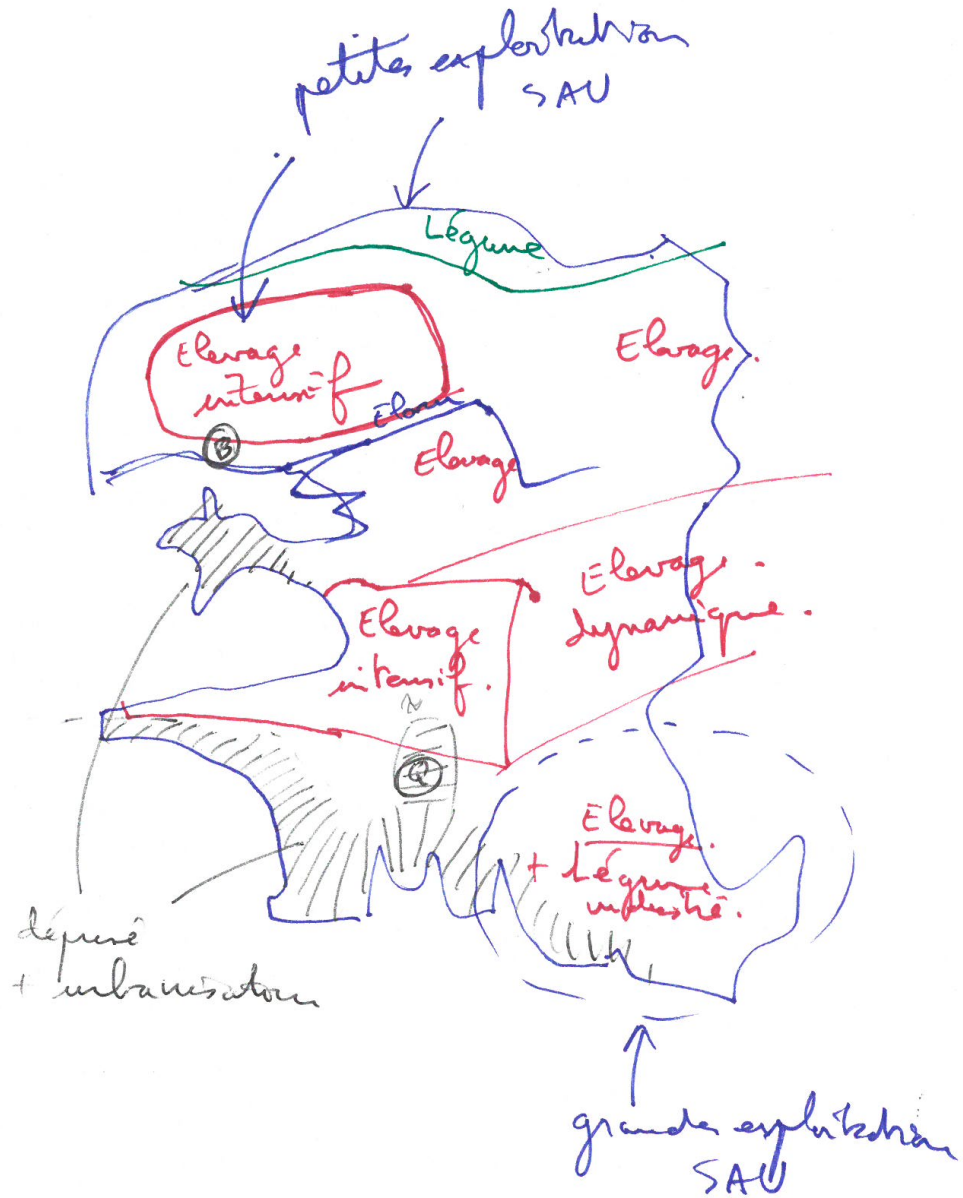 petites exploitation
SAU
Légume
Elevage
intensif
Elevage.
B
Elorn
Elevage
Elevage
dynamique.
Elevage
intensif.
N
Q
Elevage.
+ Légume
industrie.
déprise
+ urbanisation
grandes exploitation
SAU